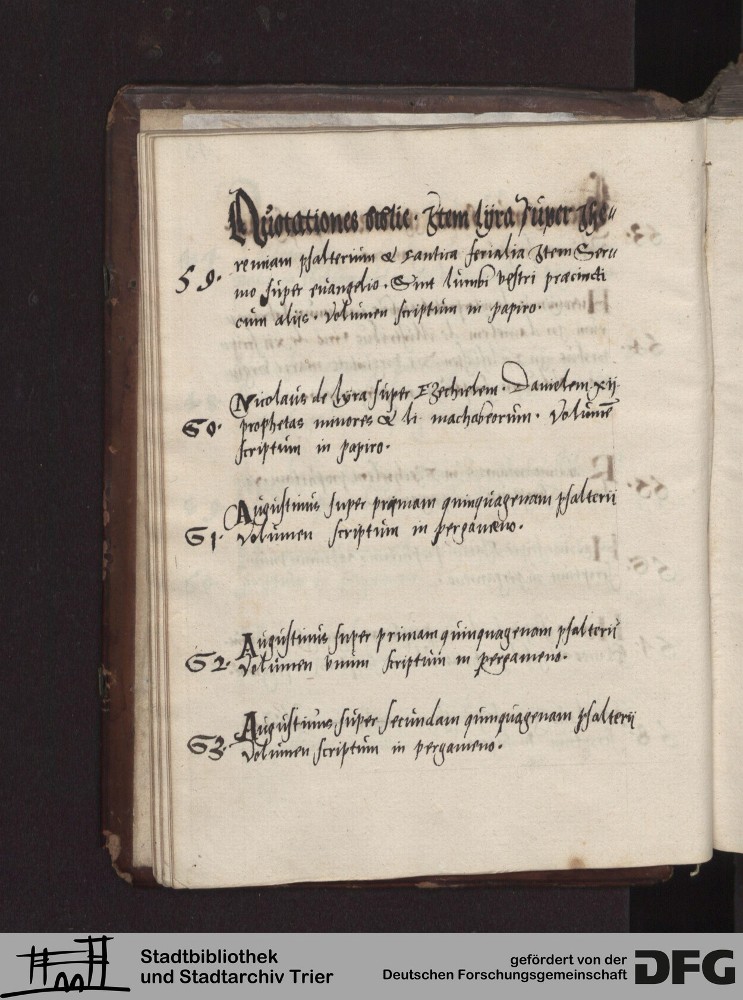 Quotationes biblie. Item lÿra super Jhe⸗
remiam psalterium & cantica ferialia Item Ser⸗
59. mo super euangelio. Sint lumbi vestri præcincti
cum alijs. Volumen scriptum in papiro.
Nicolaus de lÿra super Ezechielem. Danielem xij
60. prophetas minores & li machabeorum. Volumē
scriptum in papiro.
Augustinus super primam quinquagenam psalterii
61. Volumen scriptum in pergameno.
Augustinus super primam quinquagenam psalterii
62. Volumen vnum scriptum in pergameno.
Augustinus super secundam quinquagenam psalterij
63. Volumen scriptum in pergameno.
Stadtbibliothek
und Stadtarchiv Trier
gefördert von der
Deutschen Forschungsgemeinschaft
DFG